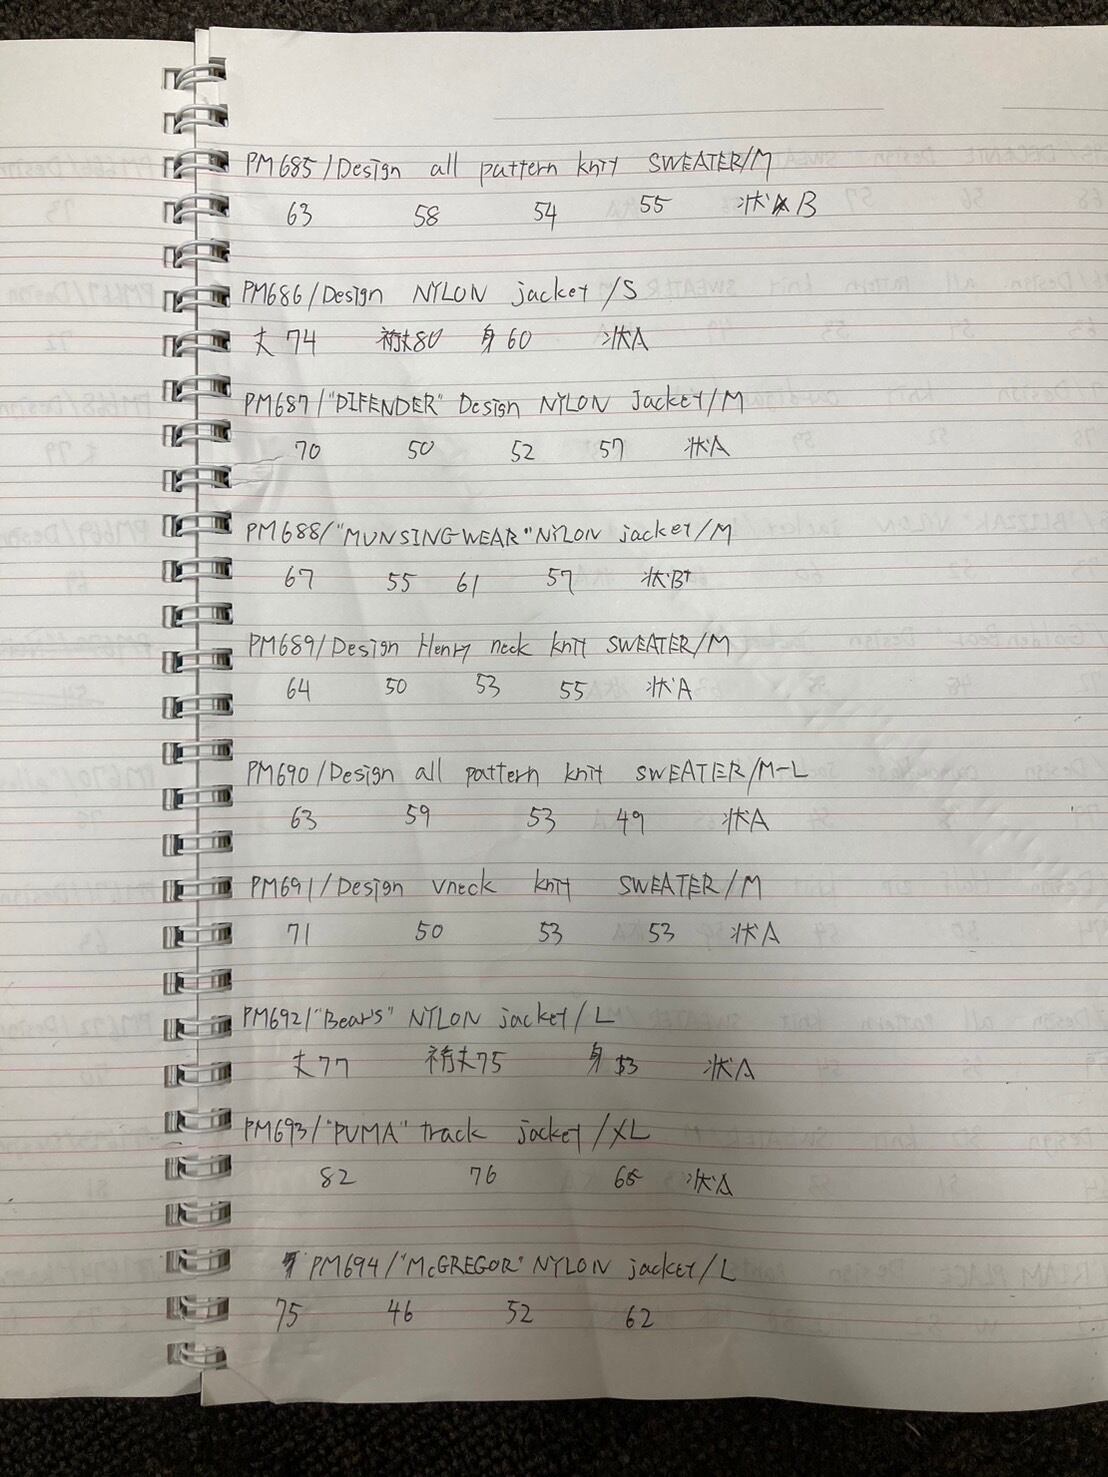 PM685/Design all pattern knit SWEATER/M
63 58 54 55 状B
PM686/Design NYLON jacket/S
丈74 裄丈80 身60 状A
PM687/"DIFENDER" Design NYLON Jacket/M
70 50 52 57 状A
PM688/"MUNSINGWEAR" NYLON jacket/M
67 55 61 57 状B+
PM689/Design Henry neck knit SWEATER/M
64 50 53 55 状A
PM690/Design all pattern knit SWEATER/M-L
63 59 53 49 状A
PM691/Design vneck knit SWEATER/M
71 50 53 53 状A
PM692/"Bear's" NYLON jacket/L
丈77 裄丈75 身53 状A
PM693/"PUMA" track jacket/XL
82 76 状A
PM694/"McGREGOR" NYLON jacket/L
75 46 52 62